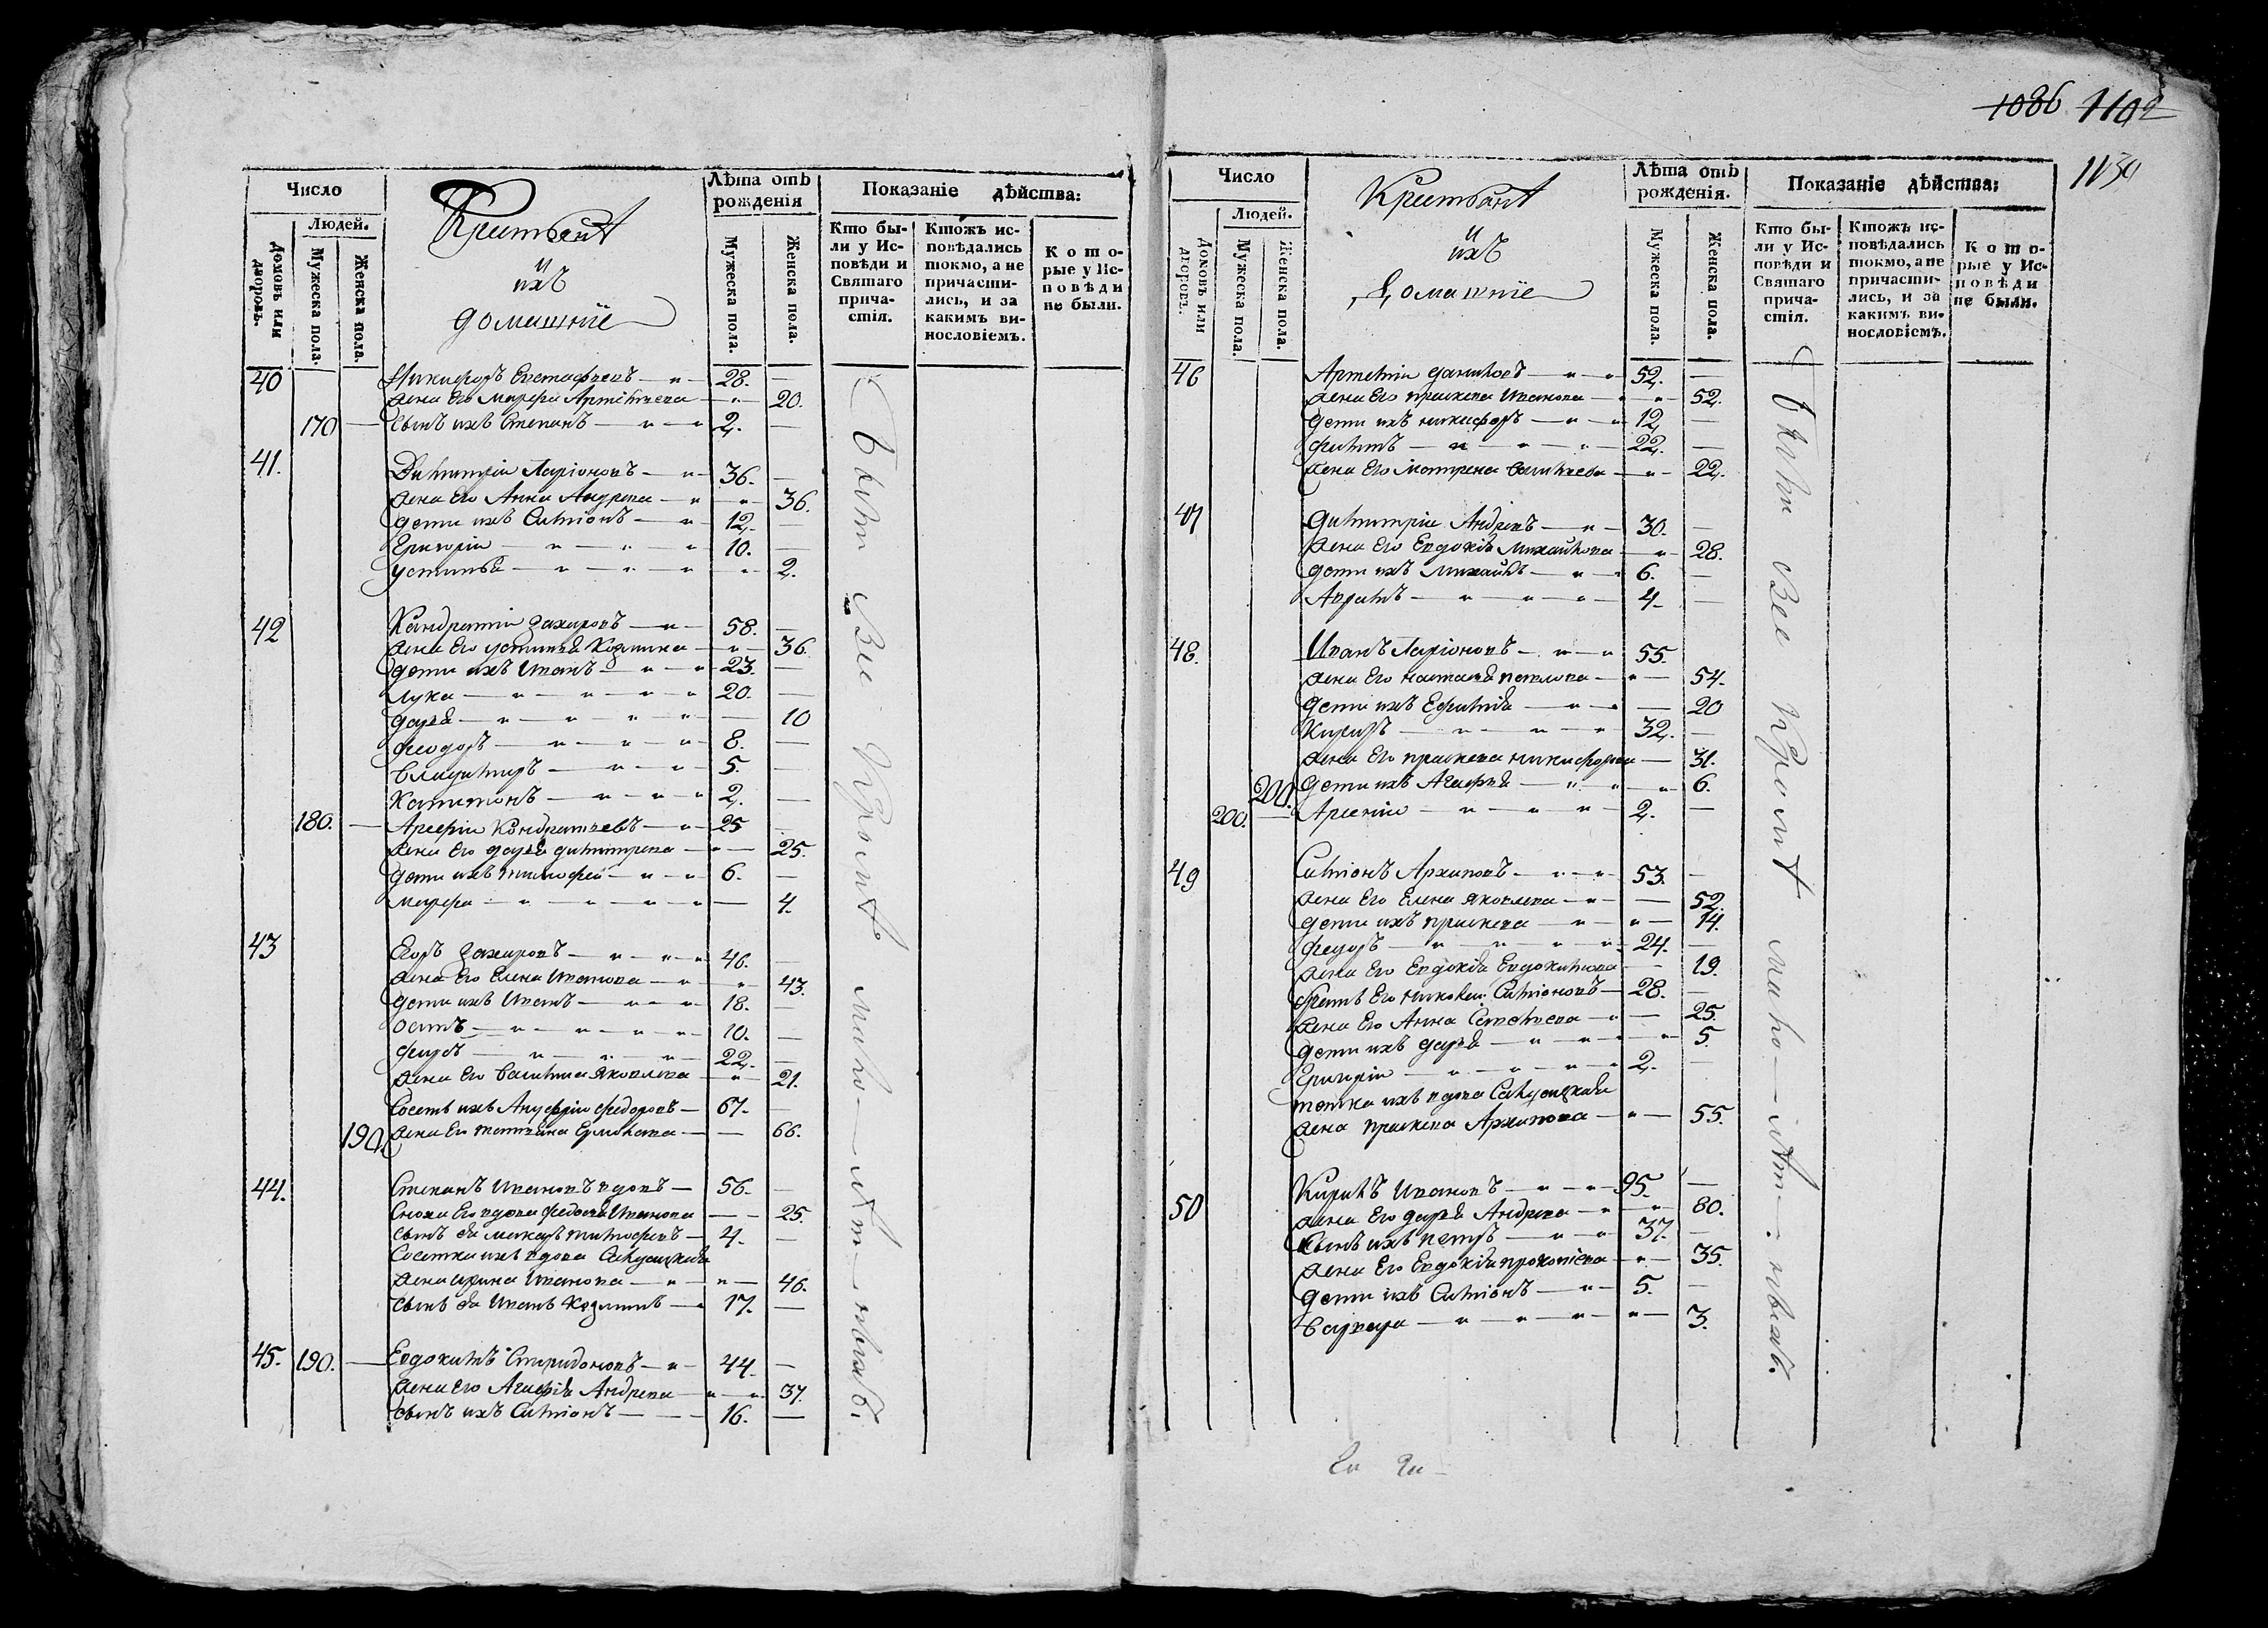 1086 1102
1139
Число
Крестьянѣ
и
ихъ
домашніе
Лѣта отъ рожденія
Показаніе дѣйства:
Домовъ или дворовъ.
Людей.
Мужеска пола.
Женска пола.
Мужеска пола.
Женска пола.
Кто были у Исповѣди и Святаго причастія.
Ктожъ исповѣдались токмо, а не причастились, и за какимъ винословіемъ.
Которые у Исповѣди не были.
40 Никифоръ Евстафьевъ 28.
жена Его Марфа Артемьева 20.
170 сынъ ихъ Степанъ 2.
41. Димитрій Ларіоновъ 36.
жена Его Анна Андреева 36.
дети ихъ Симіонъ 12.
Григорій 10.
устинья 2.
42 Кандратій захаровъ 58.
жена Его устинья Козмина 36.
дети ихъ Иванъ 23.
лука 20.
дарья 10
феодоръ 8.
владимиръ 5.
капитонъ 2.
180. Арефій Кондратьевъ 25
жена Его дарья димитрева 25.
дети ихъ тимофей 6.
марфа 4.
43 Егоръ захаровъ 46.
жена Его Елена Иванова 43.
дети ихъ Иванъ 18.
осипъ 10.
22.
жена Его василиса Яковлева 21.
Соседъ ихъ Ануфрій федоровъ 67.
190. жена Его татьяна Ермолаева 66.
44. Степанъ Ивановъ вдовъ 56.
сноха Его вдова федосья Иванова 25.
сынъ Ея макаръ тимофеевъ 4.
Соседка ихъ вдова Салдацкая
жена ирина Иванова 46.
сынъ Ея Иванъ Козминъ 17.
45. 190. Евдокимъ Спиридоновъ 44.
жена Его Агафья Андреева 37.
сынъ ихъ Симіонъ 16.
были Все Кроме мало-летнихъ.
Число
Крестьянѣ
и
ихъ
домашніе
Лѣта отъ рожденія.
Показаніе дѣйства:
Домовъ или дворовъ.
Людей.
Мужеска пола.
Женска пола.
Мужеска пола.
Женска пола.
Кто были у Исповѣди и Святаго причастія.
Ктожъ исповѣдались токмо, а не причастились, и за какимъ винословіемъ.
Которые у Исповѣди не были.
46 Артемій даниловъ 52.
жена Его прасковья Иванова 52.
дети ихъ никифоръ 12.
филипъ 22.
жена Его матрена васильева 22.
47 димитрій Андревъ 30.
жена Его Евдокія михайлова 28.
дети ихъ михайлъ 6.
4.
48. Иванъ Ларіоновъ 55.
жена Его наталья павлова 54.
дети ихъ Ефимія 20
Кирилъ 32.
жена Его прасковья никифорова 31.
200. дети ихъ Агафья 6.
200. Арсеній 2.
49 Симіонъ Архиповъ 53.
жена Его Елена Яковлева 52.
дети ихъ прасковья 14.
федоръ 24.
жена Его Евдокія Евдокимова 19.
братъ Его николай Симіоновъ 28.
жена Его Анна Семенова 25.
дети ихъ дарья 5.
Григорій 2.
тетка ихъ вдова Салдацкая
жена прасковья Архипова 55.
50 Кирилъ Ивановъ 95.
жена Его дарья Андреева 80.
сынъ ихъ петръ 37.
жена Его Евдокія прокопіева 35.
дети ихъ Симіонъ 5.
варвара 3.
были Все Кроме мало-летнихъ.